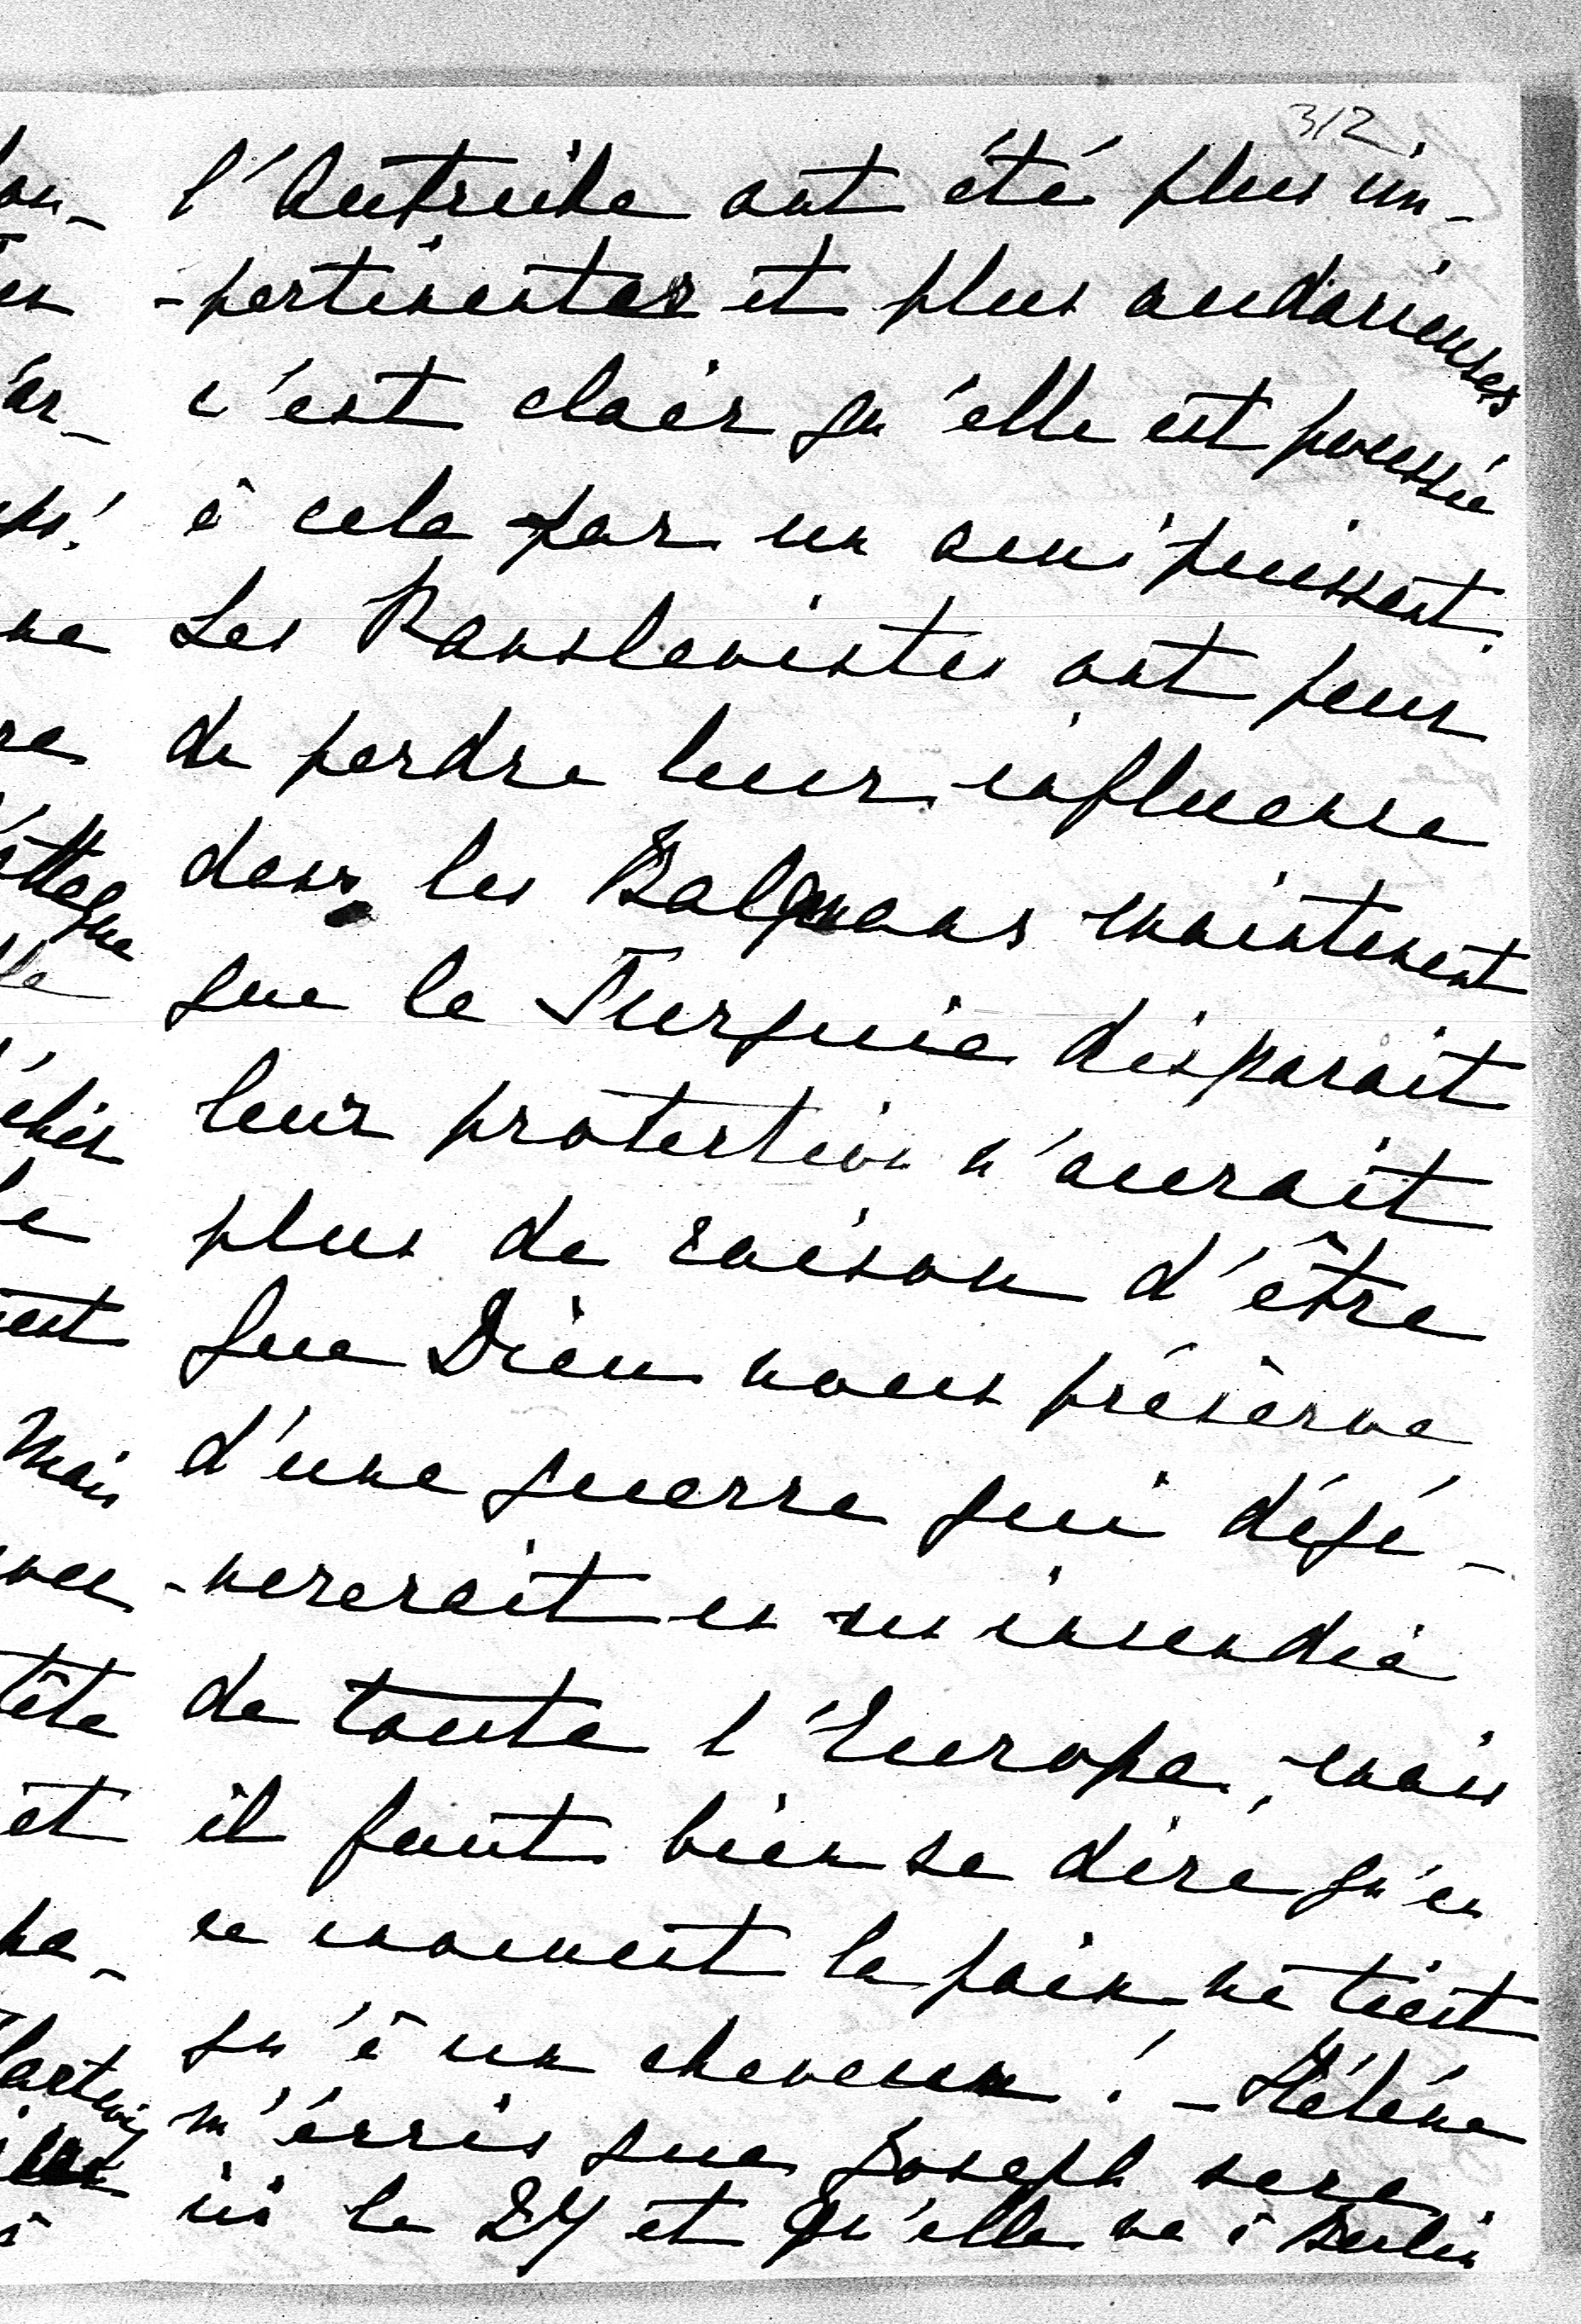 312
l'Autriche ont été plus im-
-pertinentes et plus audacieuses
c'est clair qu'elle est poussée
à cela par un ami puissant.
Les Panslavistes ont peur
de perdre leur influence
dans les Balquans maintenant
que la Turquie disparait
leur protection n'aurait
plus de raison d'être
que Dieu nous préserve
d'une guerre qui dégé-
-nererait en un incendie
de toute l'Europe, mais
il faut bien se dire qu'en
ce moment la paix ne tient
qu'à un cheveux! - Hélène
m'écris que Joseph sera
ici le 27 et qu'elle va à Berlin